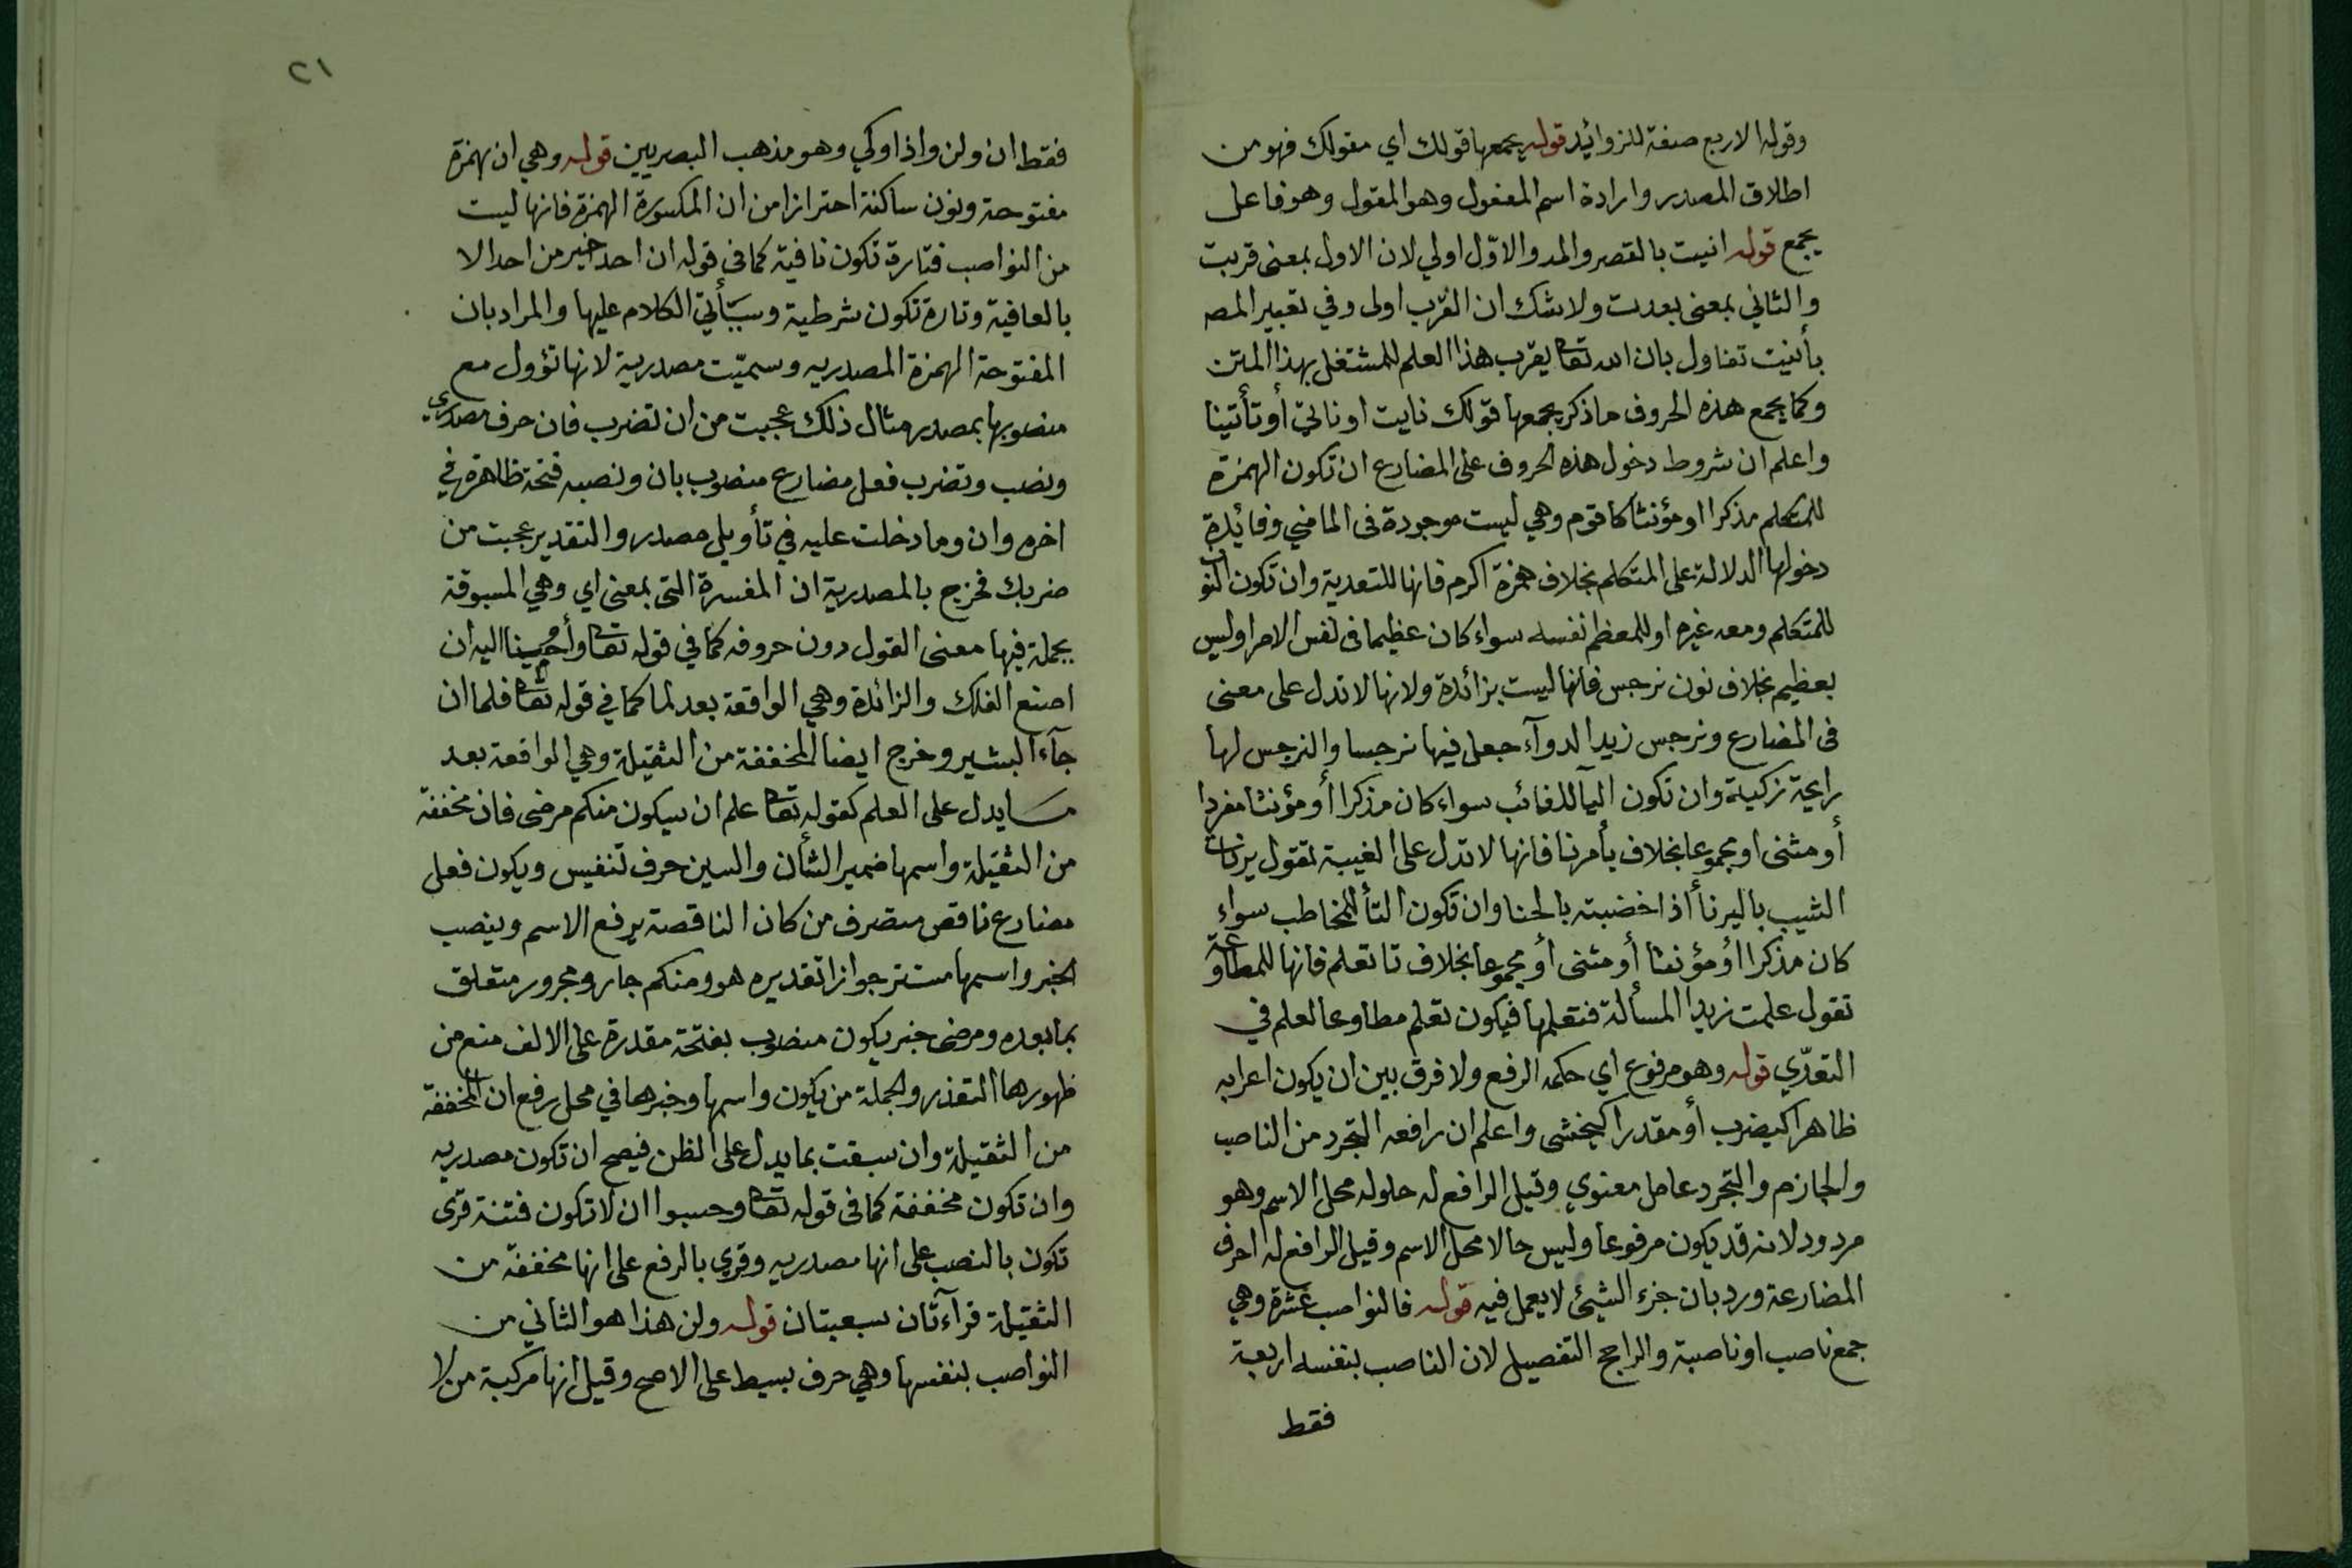 وقوله الاربع صفة للزوائد قوله يجمعها قولك اي مقولك فهو من
اطلاق المصدر وارادة اسم المفعول وهو المقول وهو فاعل
يجمع قوله انيت بالقصر والمد والاوّل اولي لان الاول بمعنى قربت
والثاني بمعنى بعدت ولا شك ان القرب اولى وفي تعبير المص
بأنيت تفاول بان الله تعا يقرب هذا العلم للمشتغل بهذا المتن
وكما يجمع هذه الحروف ما ذكر يجمعها قولك نايت او ناتي أو تأتينا
واعلم ان شروط دخول هذه الحروف على المضارع ان تكون الهمزة
للمتكلم مذكرا او مؤنثا كاقوم وهي ليست موجودة فى الماضي وفائدة
دخولها الدلالة على المتكلم بخلاف همزة اكرم فانها للتعدية وان تكون النون
للمتكلم ومعه غيره او للمعظم نفسه سواء كان عظيما فى نفس الامر اوليس
بعظيم بخلاف نون نرجس فانها ليست بزائدة ولانها لا تدل على معنى
فى المضارع ونرجس زيد الدوآء جعل فيها نرجسا والنرجس لها
رايحة زكية وان تكون اليآ للغائب سواء كان مذكرا أو مؤنثا مفردا
أو مثنى او مجموعا بخلاف يأ يرنا فانها لا تدل على الغيبة تقول يرنات
الشيب باليرنأ أذا خضبته بالحنا وان تكون التأ للمخاطب سواء
كان مذكرا أو مؤنثا أو مثنى أو مجموعا بخلاف تا تعلم فانها للمطاوعة
تقول علمت زيدا المسألة فتعلمها فيكون تعلم مطاوعا لعلم في
التعدّي قوله وهو مرفوع اي حكمه الرفع ولا فرق بين ان يكون اعرابه
ظاهرا كيضرب أو مقدرا كيخشى واعلم ان رافعه التجرد من الناصب
والجازم والتجرد عامل معنوي وقيل الرافع له حلوله محل الاسم وهو
مردود لانه قد يكون مرفوعا وليس حالا محل الاسم وقيل الرافع له احرف
المضارعة ورد بان جزء الشيئ لا يعمل فيه قوله فالنواصب عشرة وهي
جمع ناصب او ناصبة والراجح التفصيل لان الناصب بنفسه اربعة
فقط
٢١
فقط ان ولن واذا وكي وهو مذهب البصريين قوله وهي ان بهمزة
مفتوحة ونون ساكنة احترازا من ان المكسورة الهمزة فانها ليست
من النواصب فتارة تكون نافية كما في قوله ان احد خير من احد الا
بالعافية وتارة تكون شرطية وسيأتي الكلام عليها والمراد بان
المفتوحة الهمزة المصدريه وسميّت مصدرية لانها تؤول مع
منصوبها بمصدر مثال ذلك عجبت من ان تضرب فان حرف مصدري
ونصب وتضرب فعل مضارع منصوب بان ونصبه فتحة ظاهرة في
اخره وان وما دخلت عليه في تأويل مصدر والتقدير عجبت من
ضربك فخرج بالمصدرية ان المفسرة التى بمعنى اي وهي المسبوقة
بجملة فيها معنى القول دون حروفه كما في قوله تعا وأوحينا اليه ان
اصنع الفلك والزائدة وهي الواقعة بعد لما كما في قوله تعا فلما ان
جآء البشير وخرج ايضا المخففة من الثقيلة وهي الواقعة بعد
ما يدل على العلم كقوله تعا علم ان سيكون منكم مرضى فان مخففة
من الثقيلة واسمها ضمير الشأن والسين حرف تنفيس ويكون فعل
مضارع ناقص متصرف من كان الناقصة يرفع الاسم وينصب
الخبر واسمها مستتر جوازا تقديره هو ومنكم جار ومجرور متعلق
بما بعده ومرضى خبر يكون منصوب بفتحة مقدرة على الالف منع من
ظهورها التعذر والجملة من يكون واسمها وخبرها في محل رفع ان المخففة
من الثقيلة وان سبقت بما يدل على الظن فيصح ان تكون مصدريه
وان تكون مخففة كما فى قوله تعا وحسبوا ان لا تكون فتنة قرى
تكون بالنصب على انها مصدريه وقري بالرفع على انها مخففة من
الثقيلة قرآءتان سبعيتان قوله ولن هذا هو الثاني من
النواصب بنفسها وهي حرف بسيط على الاصح وقيل انها مركبة من لا